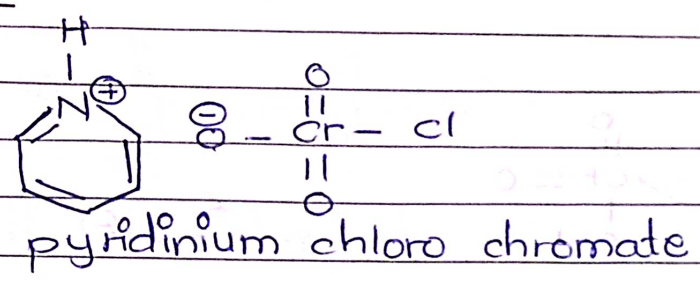 H
N ⊕ O
⊖ O – Cr – Cl
O
pyridinium chloro chromate